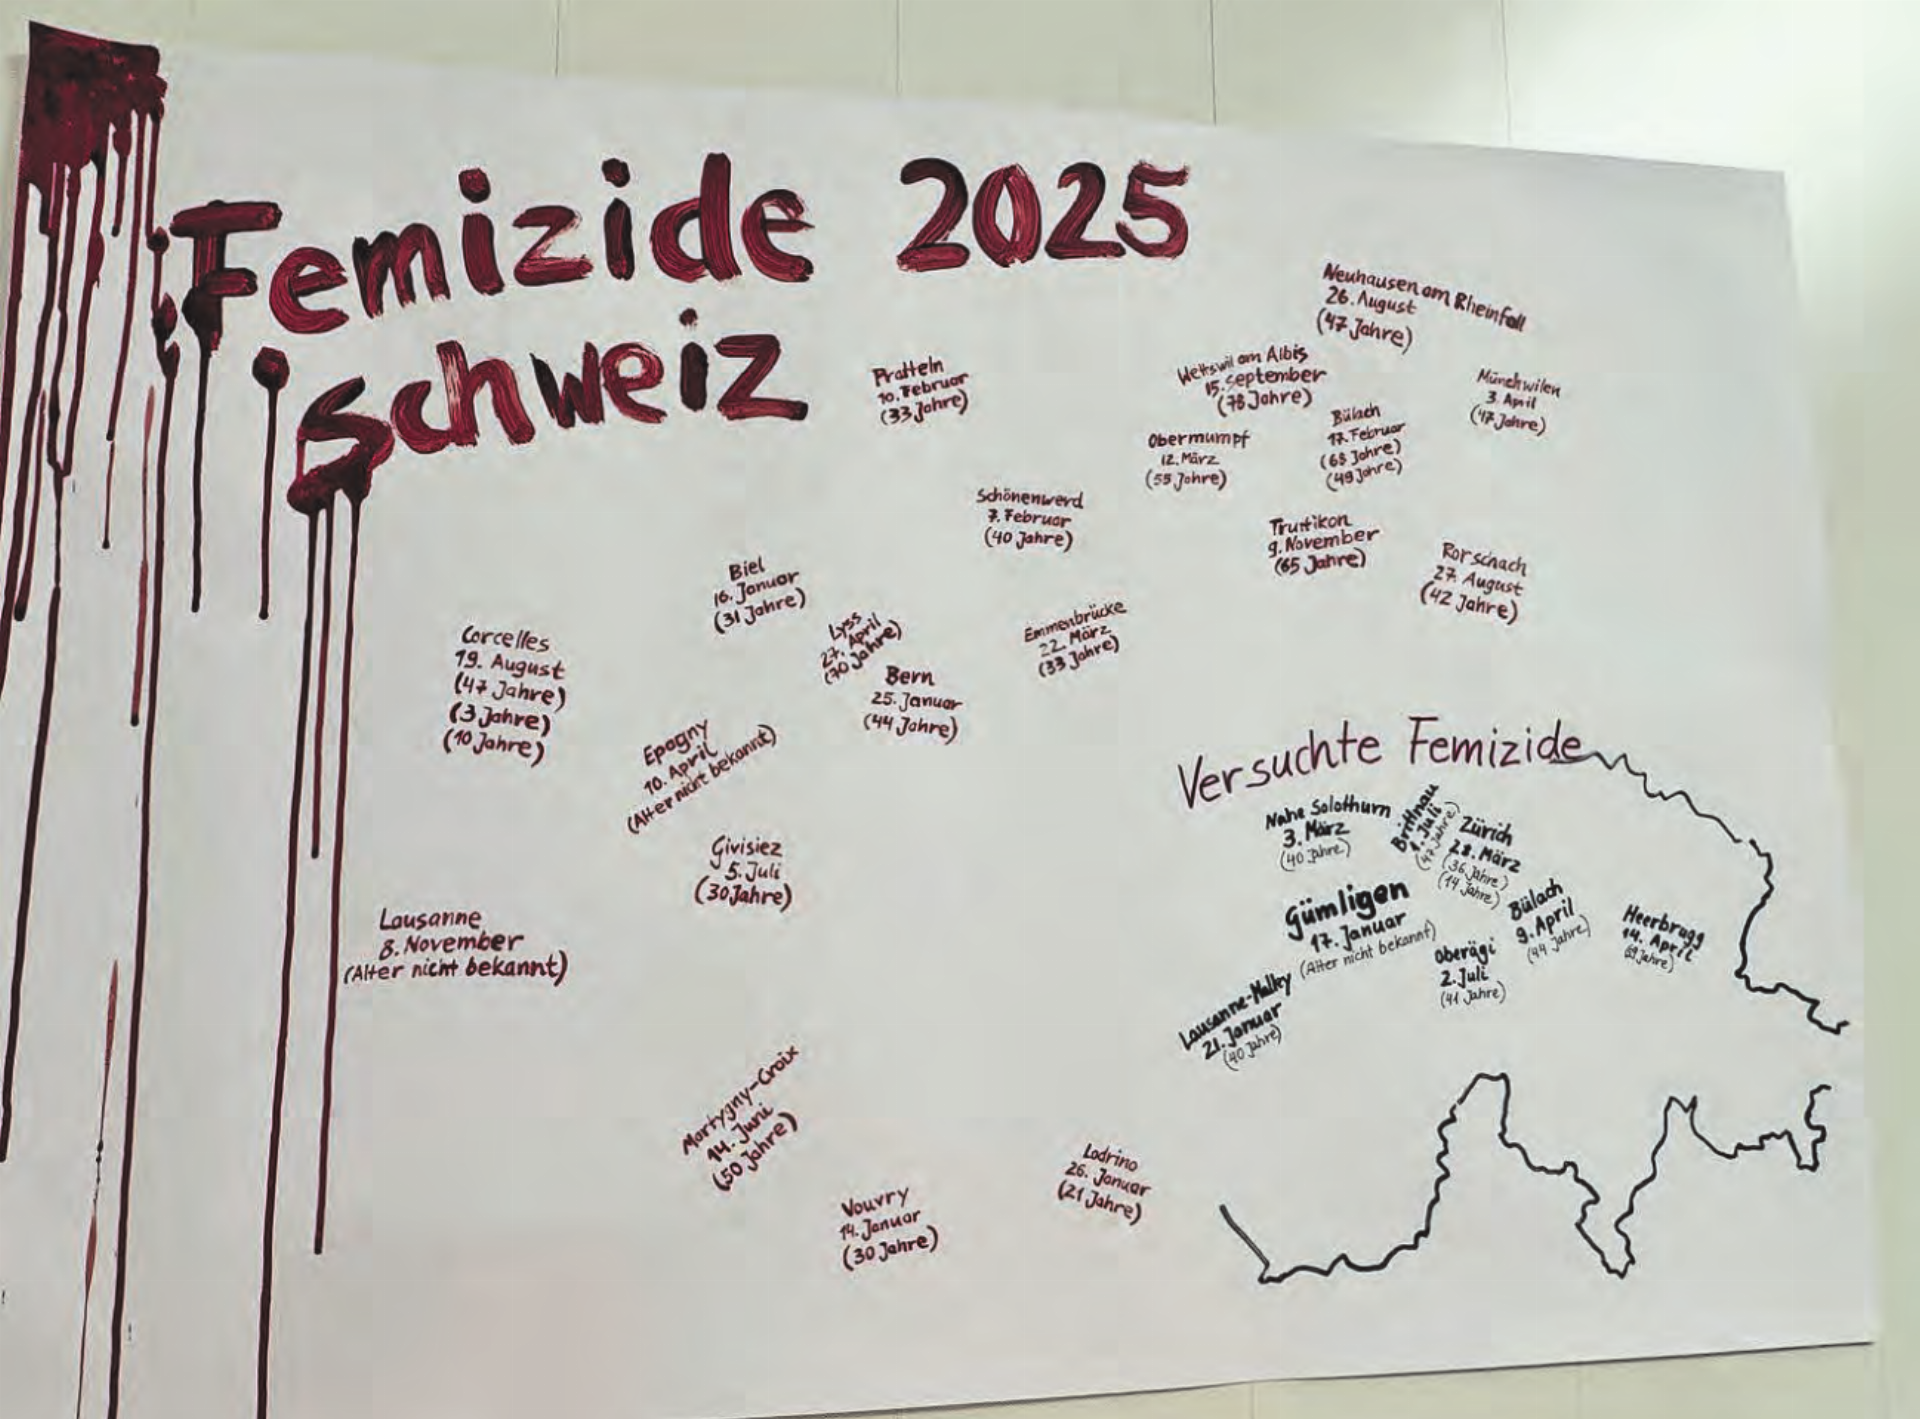 Femizide 2025
Schweiz
Neuhausen am Rheinfall
26. August
(47 Jahre)
Pratteln
10. Februar
(33 Jahre)
Wettswil am Albis
15. September
(78 Jahre)
Münchwilen
3. April
(47 Jahre)
Bülach
17. Februar
(68 Jahre)
(49 Jahre)
Obermumpf
12. März
(55 Jahre)
Schönenwerd
7. Februar
(40 Jahre)
Truttikon
9. November
(65 Jahre)
Rorschach
27. August
(42 Jahre)
Biel
16. Januar
(31 Jahre)
Lyss
27. April
(70 Jahre)
Emmenbrücke
22. März
(33 Jahre)
Corcelles
19. August
(47 Jahre)
(3 Jahre)
(10 Jahre)
Bern
25. Januar
(44 Jahre)
Epagny
10. April
(Alter nicht bekannt)
Givisiez
5. Juli
(30 Jahre)
Lausanne
8. November
(Alter nicht bekannt)
Martygny-Croix
14. Juni
(50 Jahre)
Vouvry
14. Januar
(30 Jahre)
Lodrino
26. Januar
(21 Jahre)
Versuchte Femizide
Nahe Solothurn
3. März
(40 Jahre)
Brittnau
1. Juli
(47 Jahre)
Zürich
28. März
(36 Jahre)
(14 Jahre)
Gümligen
17. Januar
(Alter nicht bekannt)
Bülach
9. April
(44 Jahre)
Heerbrugg
14. April
Jahre)
Oberägi
2. Juli
(41 Jahre)
Lausanne-Malley
21. Januar
(40 Jahre)